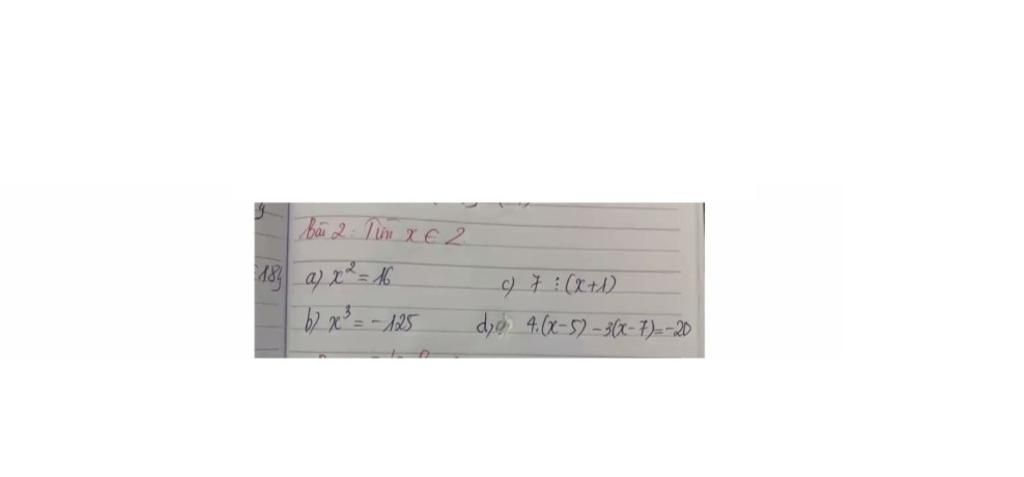 Bài 2: Tìm x ∈ Z
18}
a) x² = 16
c) 7 ⋮ (x+1)
b) x³ = -125
d) 4.(x-5) - 3(x-7) = -20